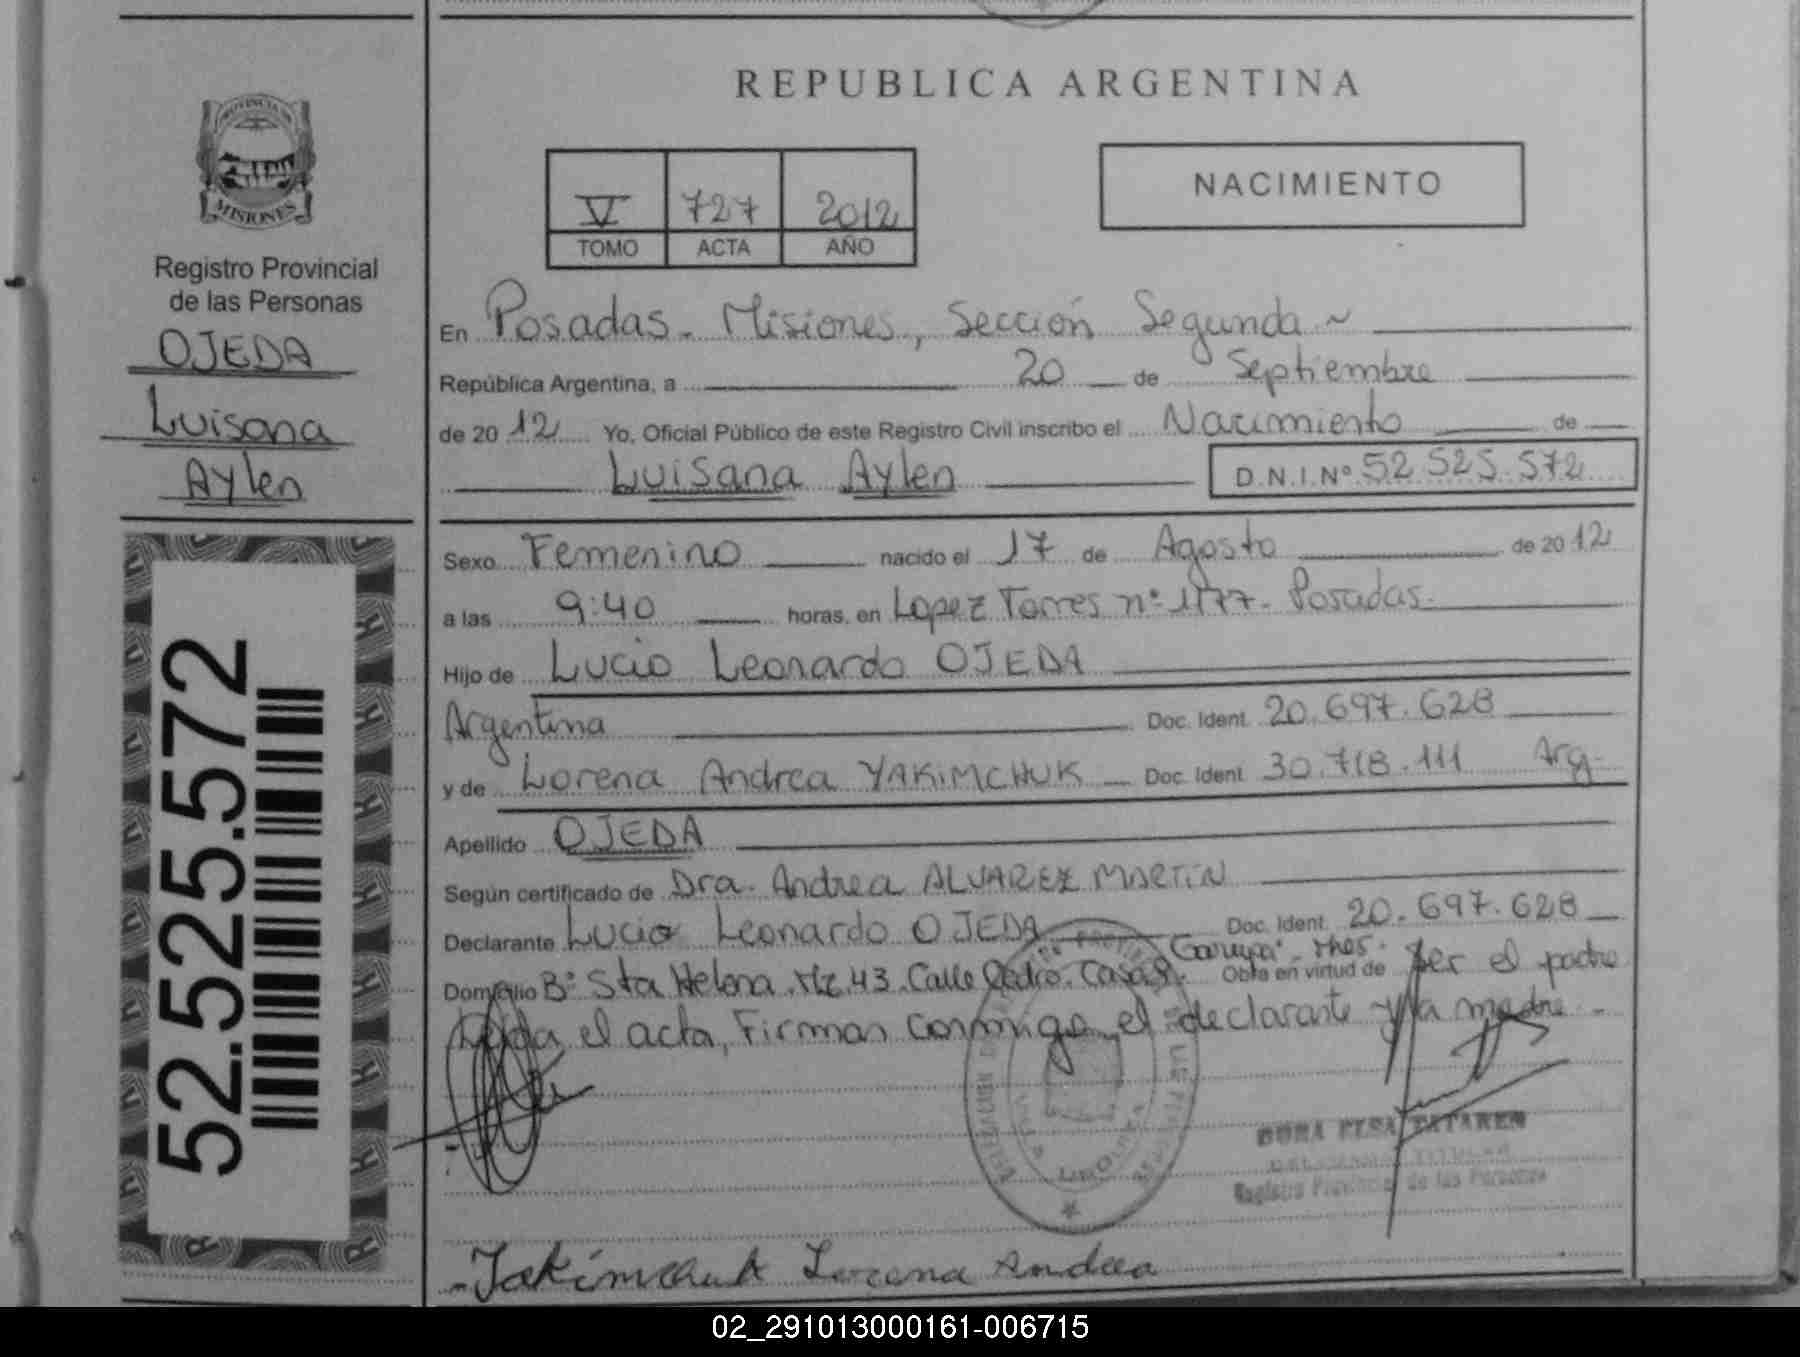 REPUBLICA ARGENTINA
PROVINCIA DE
MISIONES
Registro Provincial
de las Personas
OJEDA
Luisana
Aylen
52.525.572
V 727 2012
TOMO ACTA AÑO
NACIMIENTO
En Posadas - Misiones, Sección Segunda
República Argentina, a 20 de Septiembre
de 2012 Yo, Oficial Público de este Registro Civil inscribo el Nacimiento de
Luisana Aylen D.N.I.Nº 52.525.572
Sexo Femenino nacido el 17 de Agosto de 2012
a las 9:40 horas, en Lopez Torres nº 1177 - Posadas.
Hijo de Lucio Leonardo OJEDA
Argentina Doc. Ident. 20.697.628
y de Lorena Andrea YAKIMCHUK Doc. Ident. 30.718.111 Arg.
Apellido OJEDA
Según certificado de Dra. Andrea ALVAREZ MARTIN
Declarante Lucio Leonardo OJEDA Doc. Ident. 20.697.628
Domicilio Bº Sta Helena. Mz. 43. Calle Pedro. Casa Garupá - Mnes. Obra en virtud de ser el padre
Leída el acta, Firman conmigo el declarante y la madre
Registro Provincial de las Personas
Yakimchuk Lorena Andrea
02_291013000161-006715